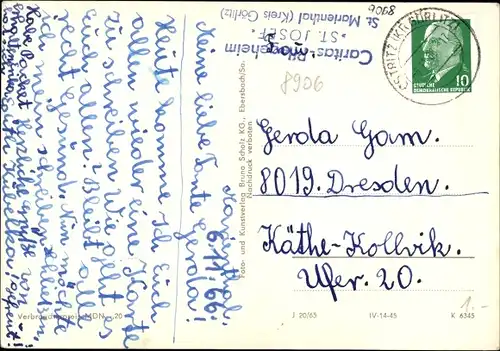 Caritas-Pflegeheim
"ST. JOSEF"
St. Marienthal (Kreis Görlitz)
8906
8906
OSTRITZ (KR GÖRLITZ)
10
DEUTSCHE
DEMOKRATISCHE REPUBLIK
Marienthal,
6.11.66.
Meine liebe Tante Gerda!
Heute komme ich Euch
allen wieder eine Karte
zu schreiben. Wie geht es
Euch allen? Bleibt alle
recht Gesund. Nun möchte
ich mein schreiben schließen,
Herzliche Grüße von
Gerda Gam.
8019. Dresden.
Käthe-Kollwik.
Ufer. 20.
Foto- und Kunstverlag Bruno Scholz KG., Ebersbach/Sa.
Nachdruck verboten
Verbraucherpreis MDN -,20
J 20/65
IV-14-45
K 6345
1.-